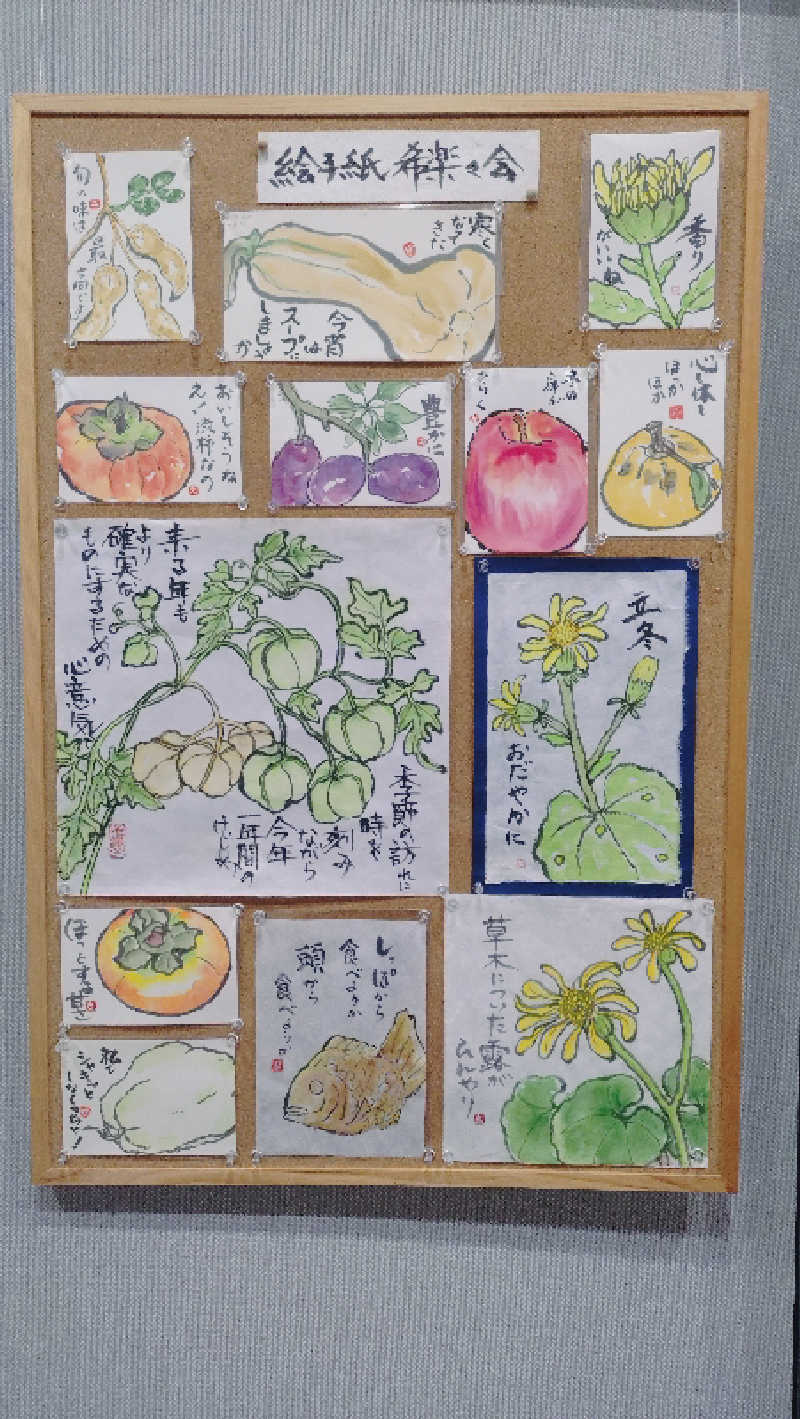 絵手紙 希楽々会
旬の味は
最高です
寒く
なって
きた
今宵
は
スープに
しましょう
か
香り
がいいね
おいしそうね
え！渋柿なの
豊かに
心も体も
ほか
ほか
来る年も
より
確実な
ものにするための
心意気で
季節の訪れに
時を
刻み
ながら
今年
一年間の
けじめ
立冬
おだやかに
ほっとする甘さ
しっぽから
食べようか
頭から
食べようか
草木についた露が
ひんやり